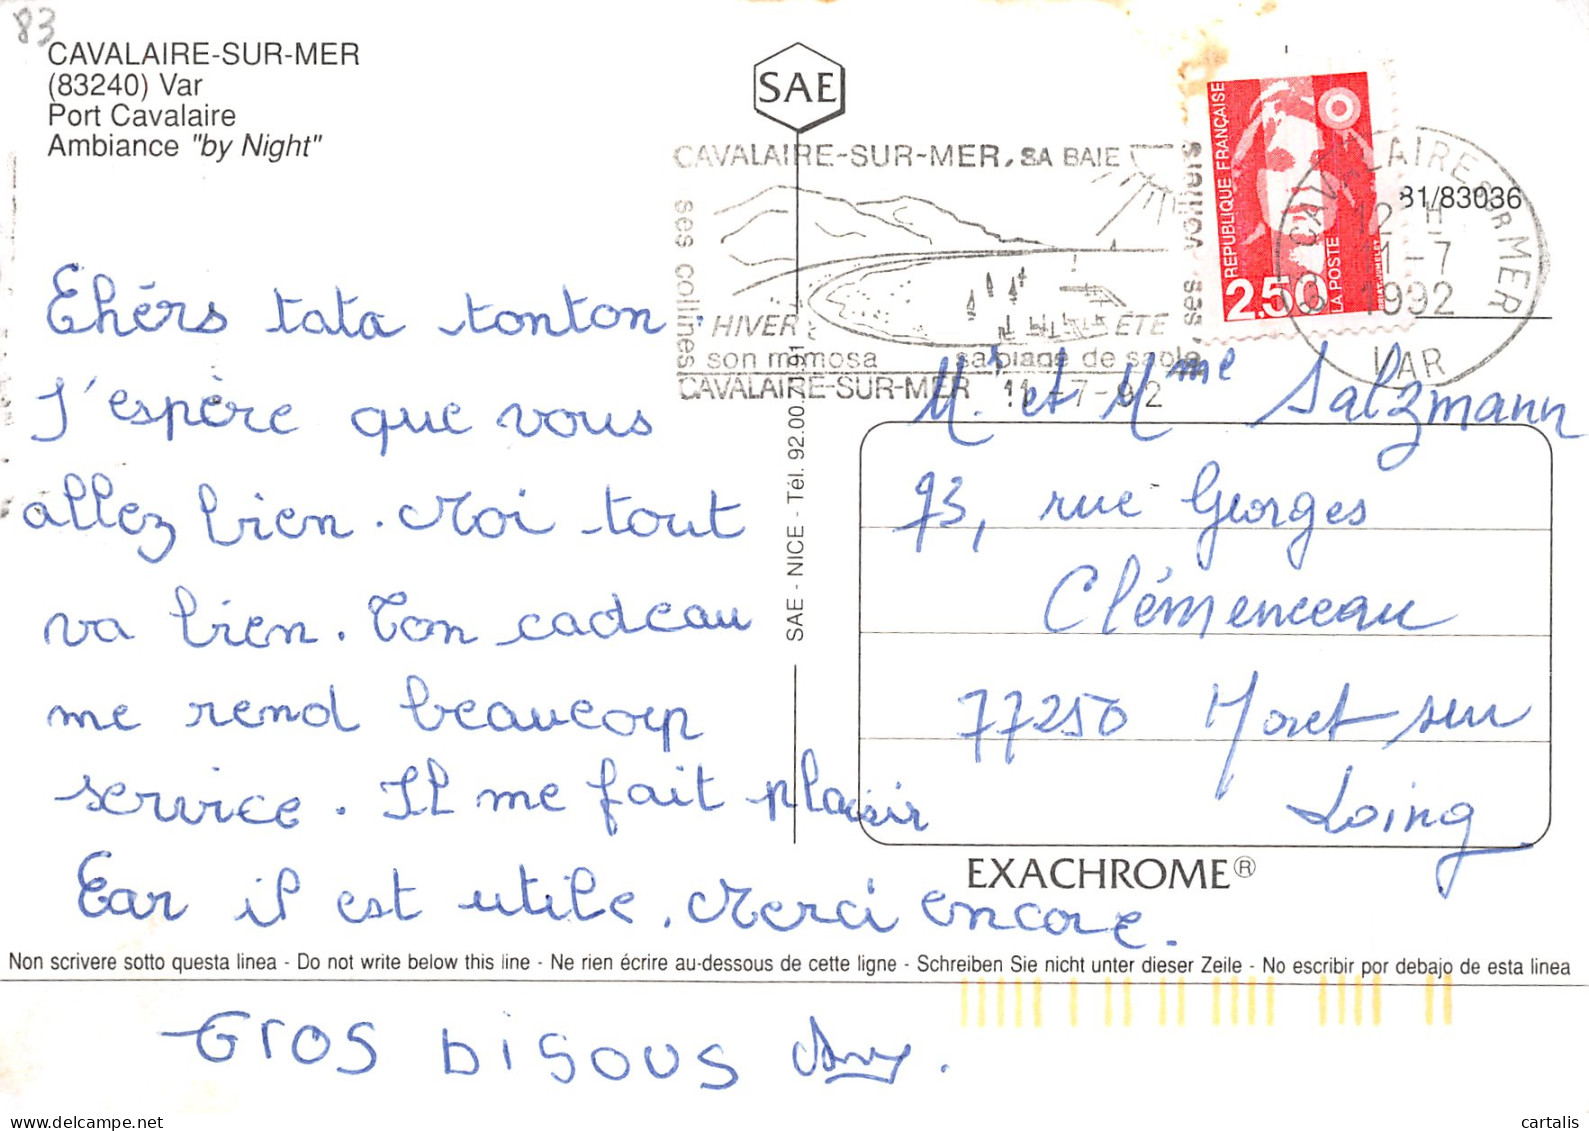 83
CAVALAIRE-SUR-MER
(83240) Var
Port Cavalaire
Ambiance "by Night"
SAE
CAVALAIRE-SUR-MER, SA BAIE
ses collines
ses voiliers
HIVER
son mimosa
ÉTÉ
sa plage de sable
CAVALAIRE-SUR-MER 11-7-92
REPUBLIQUE FRANÇAISE
LA POSTE
2.50
CAVALAIRE SUR MER
12 H
11-7
1992
VAR
81/83036
Ehérs tata tonton.
J'espère que vous
allez bien. Moi tout
va bien. Ton cadeau
me rend beaucoup
service. Il me fait plaisir
Car il est utile. Merci encore.
GROS bisous
SAE - NICE - Tél. 92.00.
M. et Mme Salzmann
93, rue Georges
Clémenceau
77250 Moret sur
Loing
EXACHROME®
Non scrivere sotto questa linea - Do not write below this line - Ne rien écrire au-dessous de cette ligne - Schreiben Sie nicht unter dieser Zeile - No escribir por debajo de esta linea
delcampe.net
cartalis